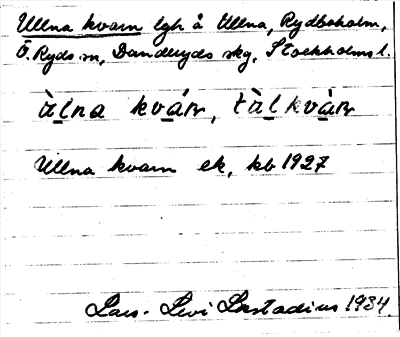 Ullna kvarn lgh å Ullna, Rydboholm,
Ö. Ryds sn, Danderyds skg, Stockholms l.
àlna kvár, tàlkvàr
Ullna kvarn ek, kb 1927
Lars-Levi Læstadius 1934.